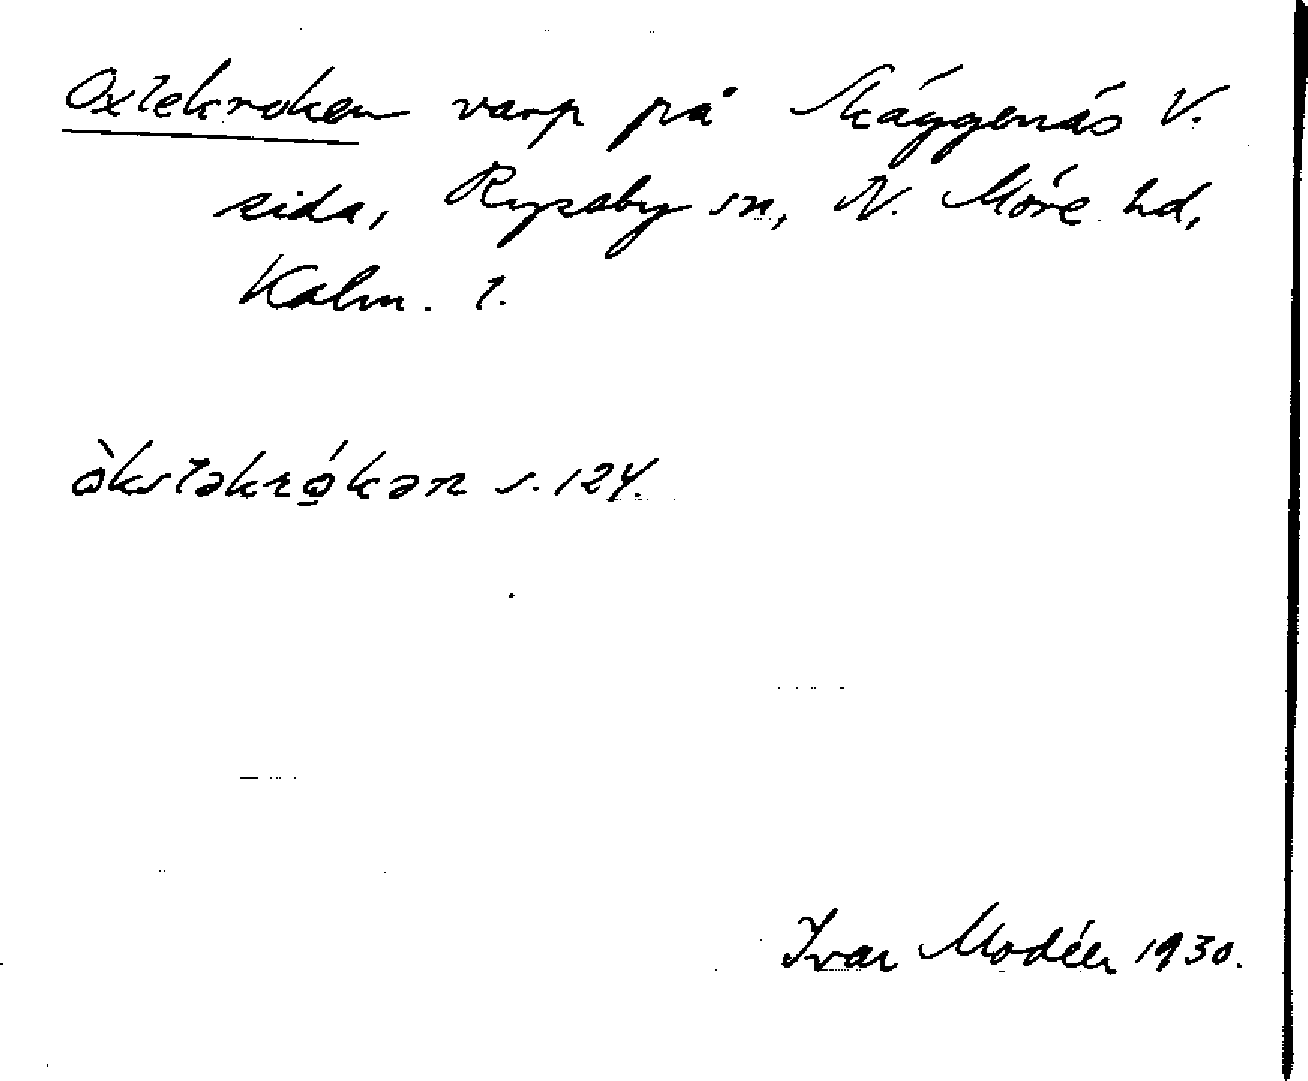 Oxtekroken varp på Skäggenäs V.
sida, Ryssby sn, N. Möre hd,
Kalm. l.
òkstəkrǫ́kən s. 124.
Ivar Modéer 1930.